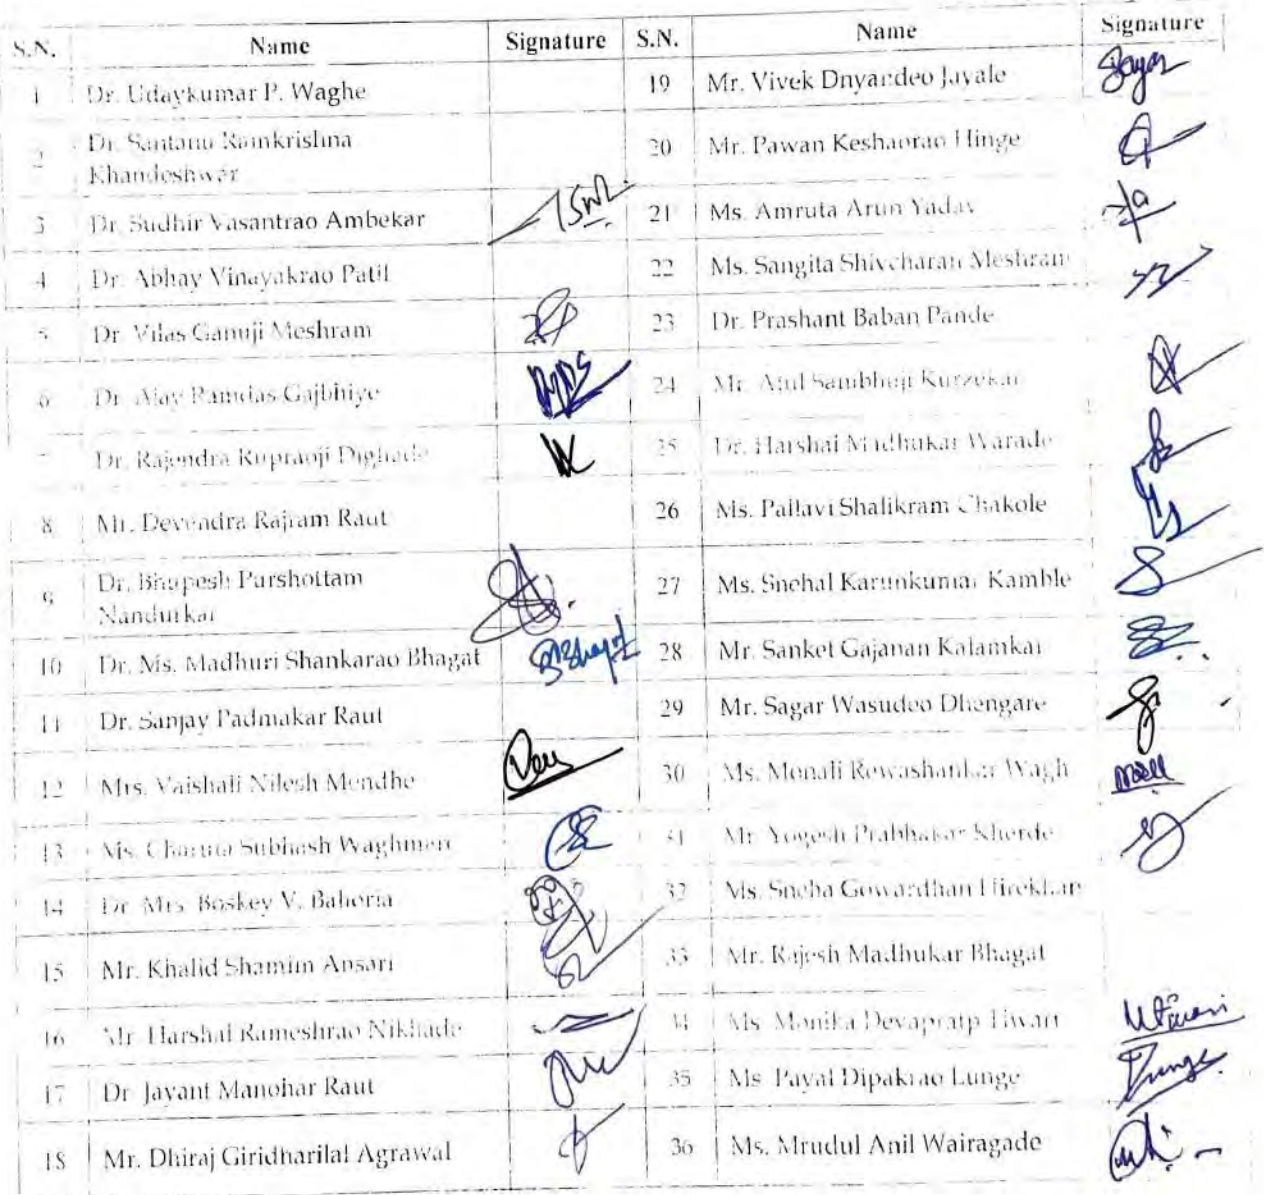 S.N. Name Signature S.N. Name Signature
1 Dr. Udaykumar P. Waghe 19 Mr. Vivek Dnyandeo Jayale
2 Dr. Santanu Ramkrishna
Khandeshwar 20 Mr. Pawan Keshaorao Hinge
3 Dr. Sudhir Vasantrao Ambekar 21 Ms. Amruta Arun Yadav
4 Dr. Abhay Vinayakrao Patil 22 Ms. Sangita Shivcharan Meshram
5 Dr. Vilas Ganuji Meshram 23 Dr. Prashant Baban Pande
6 Dr. Ajay Ramdas Gajbhiye 24 Mr. Atul Sambhuji Kurzekar
7 Dr. Rajendra Rupraoji Dighade 25 Dr. Harshal Madhukar Warade
8 Mr. Devendra Rajram Raut 26 Ms. Pallavi Shalikram Chakole
9 Dr. Bhupesh Purshottam
Nandurkar 27 Ms. Snehal Karunkumar Kamble
10 Dr. Ms. Madhuri Shankarao Bhagat 28 Mr. Sanket Gajanan Kalamkar
11 Dr. Sanjay Padmakar Raut 29 Mr. Sagar Wasudeo Dhengare
12 Mrs. Vaishali Nilesh Mendhe 30 Ms. Monali Rewashankar Wagh
13 Ms. Charuta Subhash Waghmare 31 Mr. Yogesh Prabhakar Kherde
14 Dr. Mrs. Boskey V. Bahoria 32 Ms. Sneha Gowardhan Hirekhan
15 Mr. Khalid Shamim Ansari 33 Mr. Rajesh Madhukar Bhagat
16 Mr. Harshal Rameshrao Nikhade 34 Ms. Monika Devapratp Tiwari
17 Dr. Jayant Manohar Raut 35 Ms. Payal Dipakrao Lunge
18 Mr. Dhiraj Giridharilal Agrawal 36 Ms. Mrudul Anil Wairagade